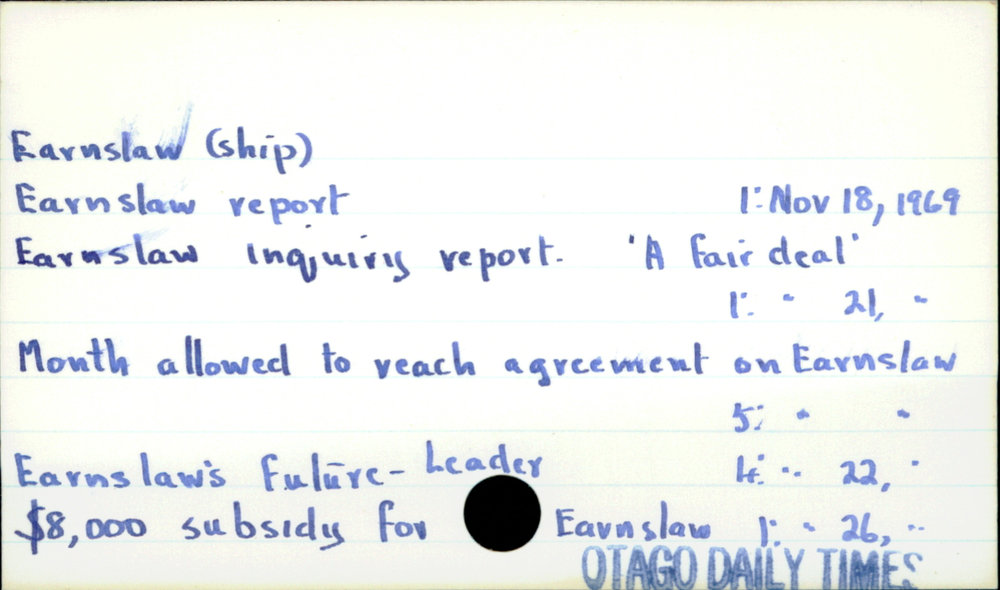 Earnslaw (ship)
Earnslaw report 1: Nov 18, 1969
Earnslaw inquiry report. 'A fair deal'
1: " 21, "
Month allowed to reach agreement on Earnslaw
5: " "
Earnslaw's Future - Leader 4: " 22, "
$8,000 subsidy for Earnslaw 1: " 26, "
OTAGO DAILY TIMES